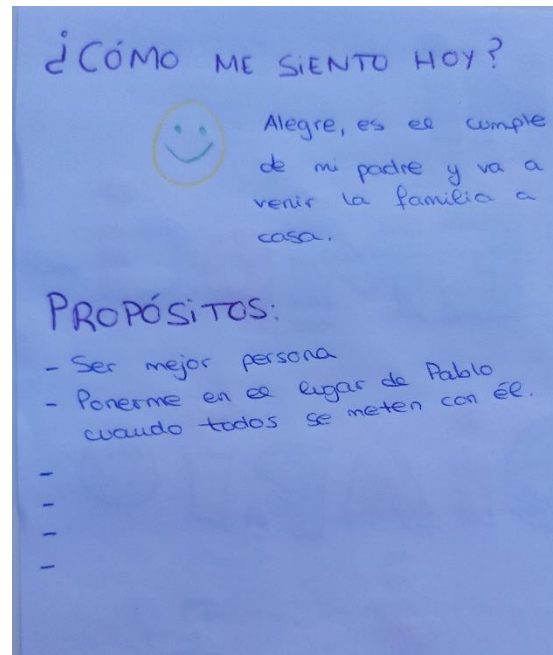 ¿CÓMO ME SIENTO HOY?
Alegre, es el cumple
de mi padre y va a
venir la familia a
casa.
PROPÓSITOS:
- Ser mejor persona
- Ponerme en el lugar de Pablo
cuando todos se meten con él.
-
-
-
-